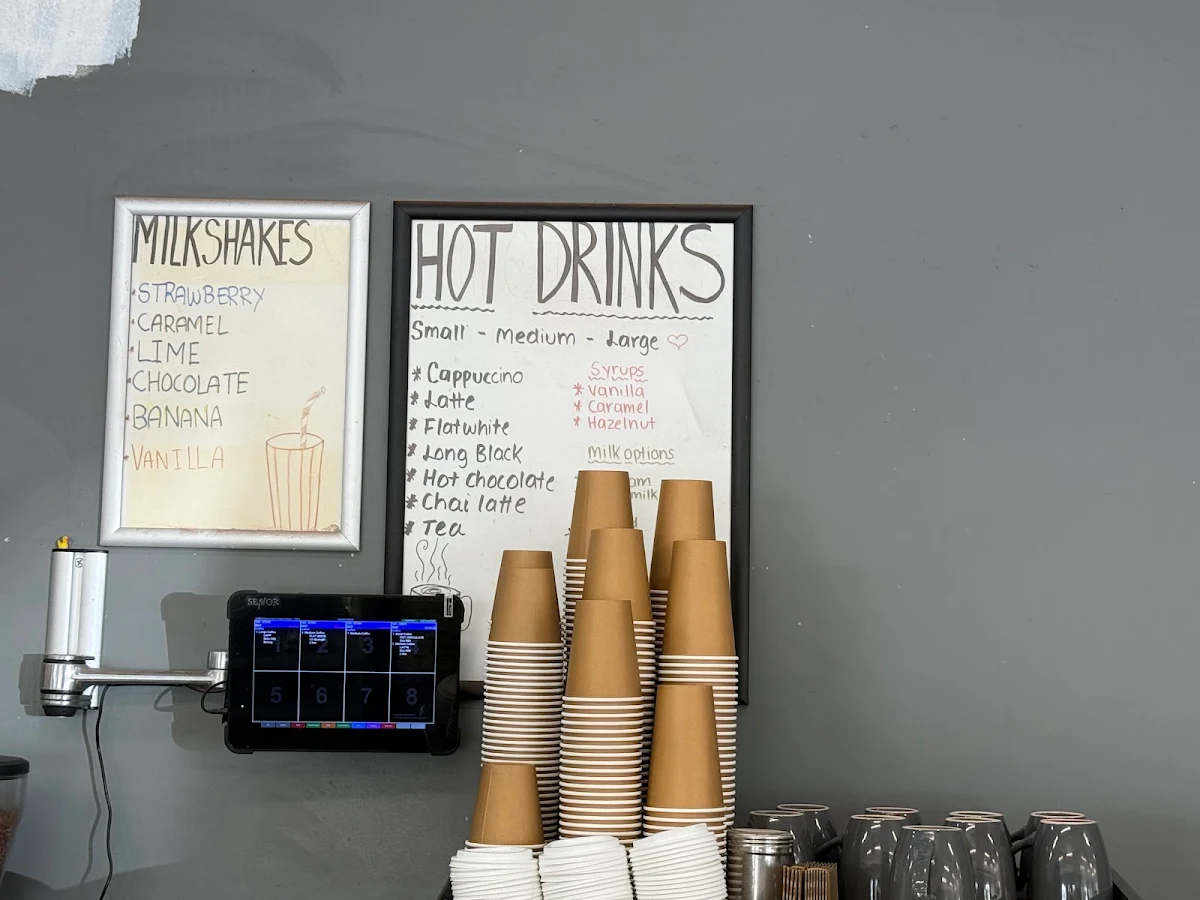 MILKSHAKES
•STRAWBERRY
•CARAMEL
•LIME
•CHOCOLATE
•BANANA
•VANILLA
HOT DRINKS
Small - medium - Large ♡
* Cappuccino
* Latte
* Flatwhite
* Long Black
* Hot chocolate
* Chai latte
* Tea
Syrups
* Vanilla
* Caramel
* Hazelnut
Milk options
milk
1 2 3 4
5 6 7 8